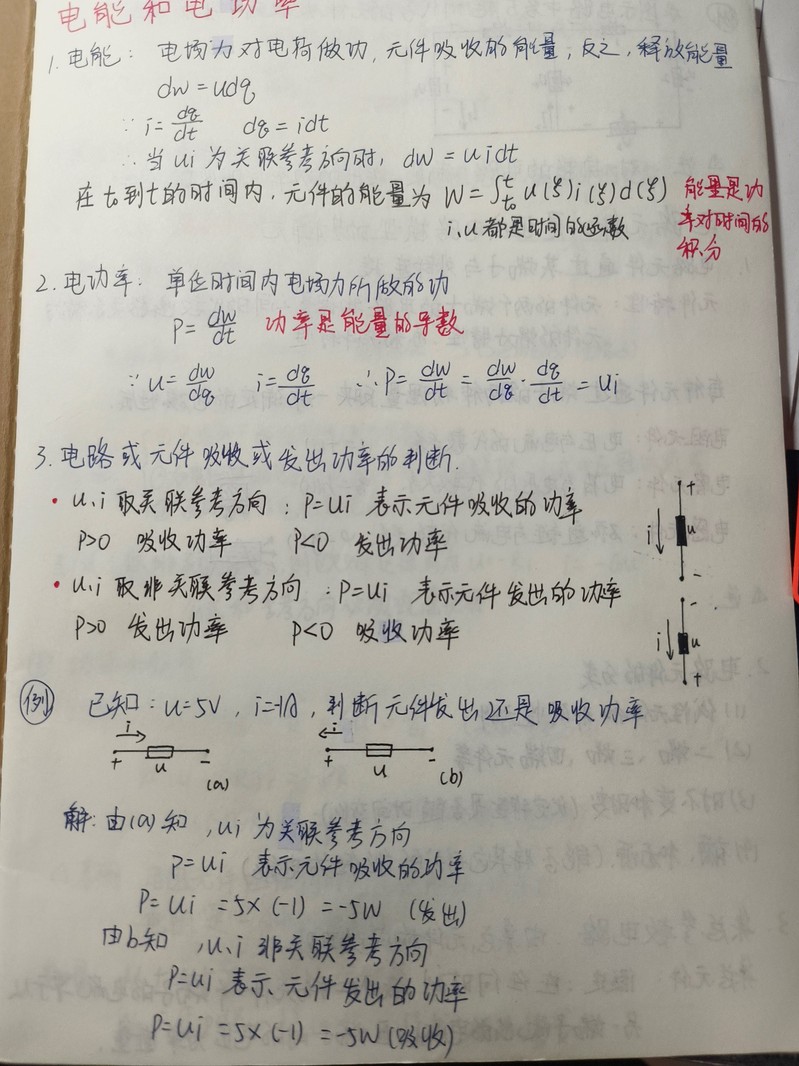 电能和电功率
1. 电能: 电场力对电荷做功,元件吸收的能量;反之,释放能量
dw = udq
∵ i = dq/dt dq = idt
∴ 当ui为关联参考方向时, dw = uidt
在t₀到t的时间内,元件的能量为 W = ∫ₜ₀ᵗ u(ξ)i(ξ)d(ξ) 能量是功
i、u都是时间的函数 率对时间的
积分
2. 电功率: 单位时间内电场力所做的功
P = dw/dt 功率是能量的导数
∵ u = dw/dq i = dq/dt ∴ P = dw/dt = dw/dq · dq/dt = ui
3. 电路或元件吸收或发出功率的判断.
• u、i取关联参考方向: P=ui 表示元件吸收的功率
P>0 吸收功率 P<0 发出功率
+
i u
-
• u、i取非关联参考方向: P=ui 表示元件发出的功率
P>0 发出功率 P<0 吸收功率
-
i u
+
例 已知: u=5V, i=-1A, 判断元件发出还是吸收功率
i i
+ u - + u -
(a) (b)
解: 由(a)知, ui为关联参考方向
P=ui 表示元件吸收的功率
P = ui = 5×(-1) = -5W (发出)
由b知, u、i非关联参考方向
P=ui 表示元件发出的功率
P=ui = 5×(-1) = -5W (吸收)